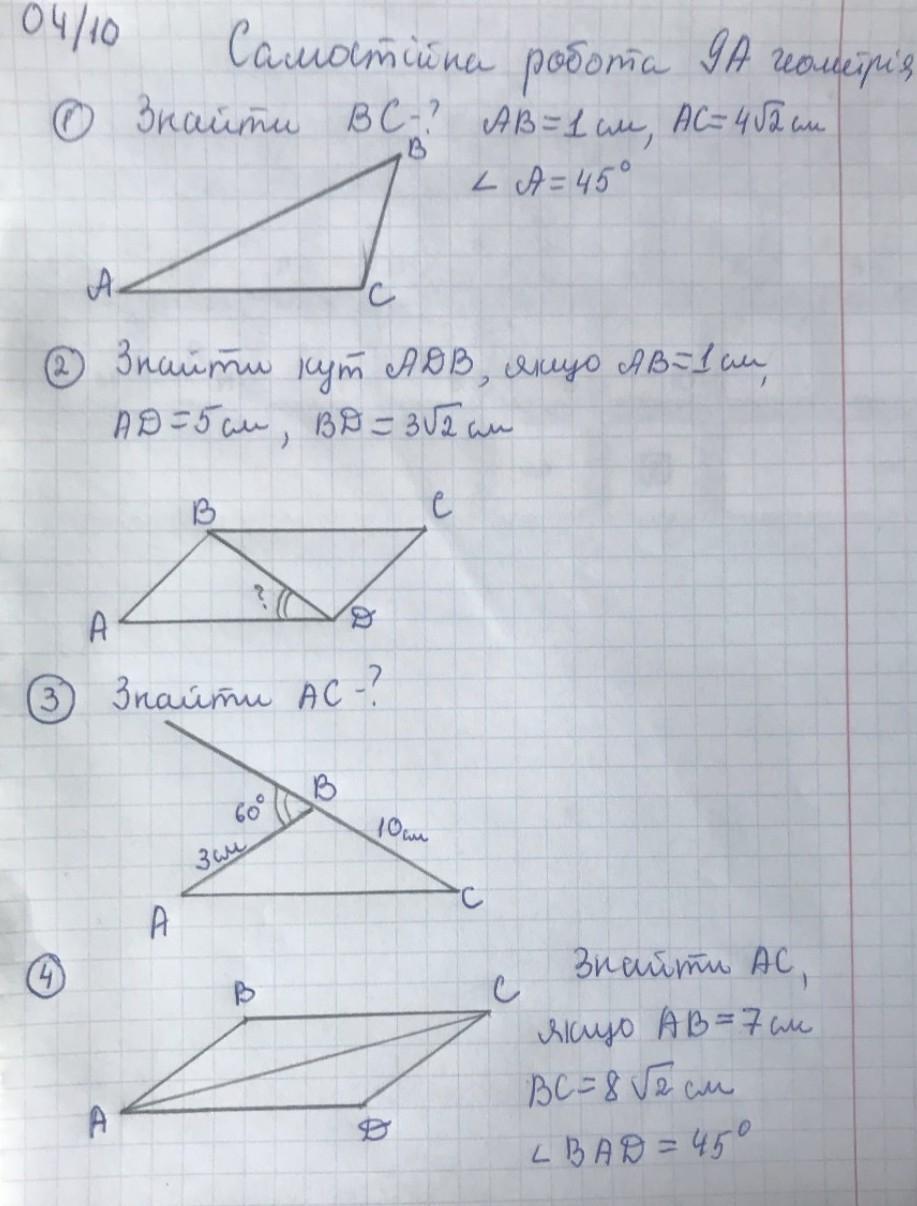 04/10
Самостійна робота 9А геометрія
① Знайти BC-? AB=1см, AC=4√2см
∠A=45°
B
A
C
② Знайти кут ADB, якщо AB=1см,
AD=5см, BD=3√2см
B
C
?
A
D
③ Знайти AC-?
B
60°
10см
3см
A
C
④
Знайти AC,
B
C
якщо AB=7см
BC=8√2см
A
D
∠BAD=45°